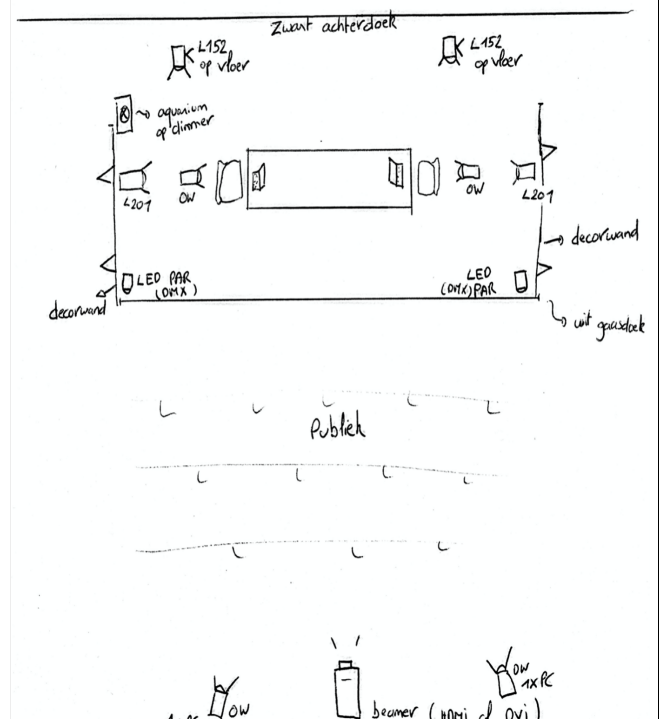 Zwart achterdoek
L152
op vloer
L152
op vloer
aquarium
op dimmer
L201
OW
OW
L201
decorwand
LED PAR
(DMX)
LED
(DMX) PAR
decorwand
wit gaasdoek
Publiek
OW
1xPC
OW
beamer (HDMI of DVI)